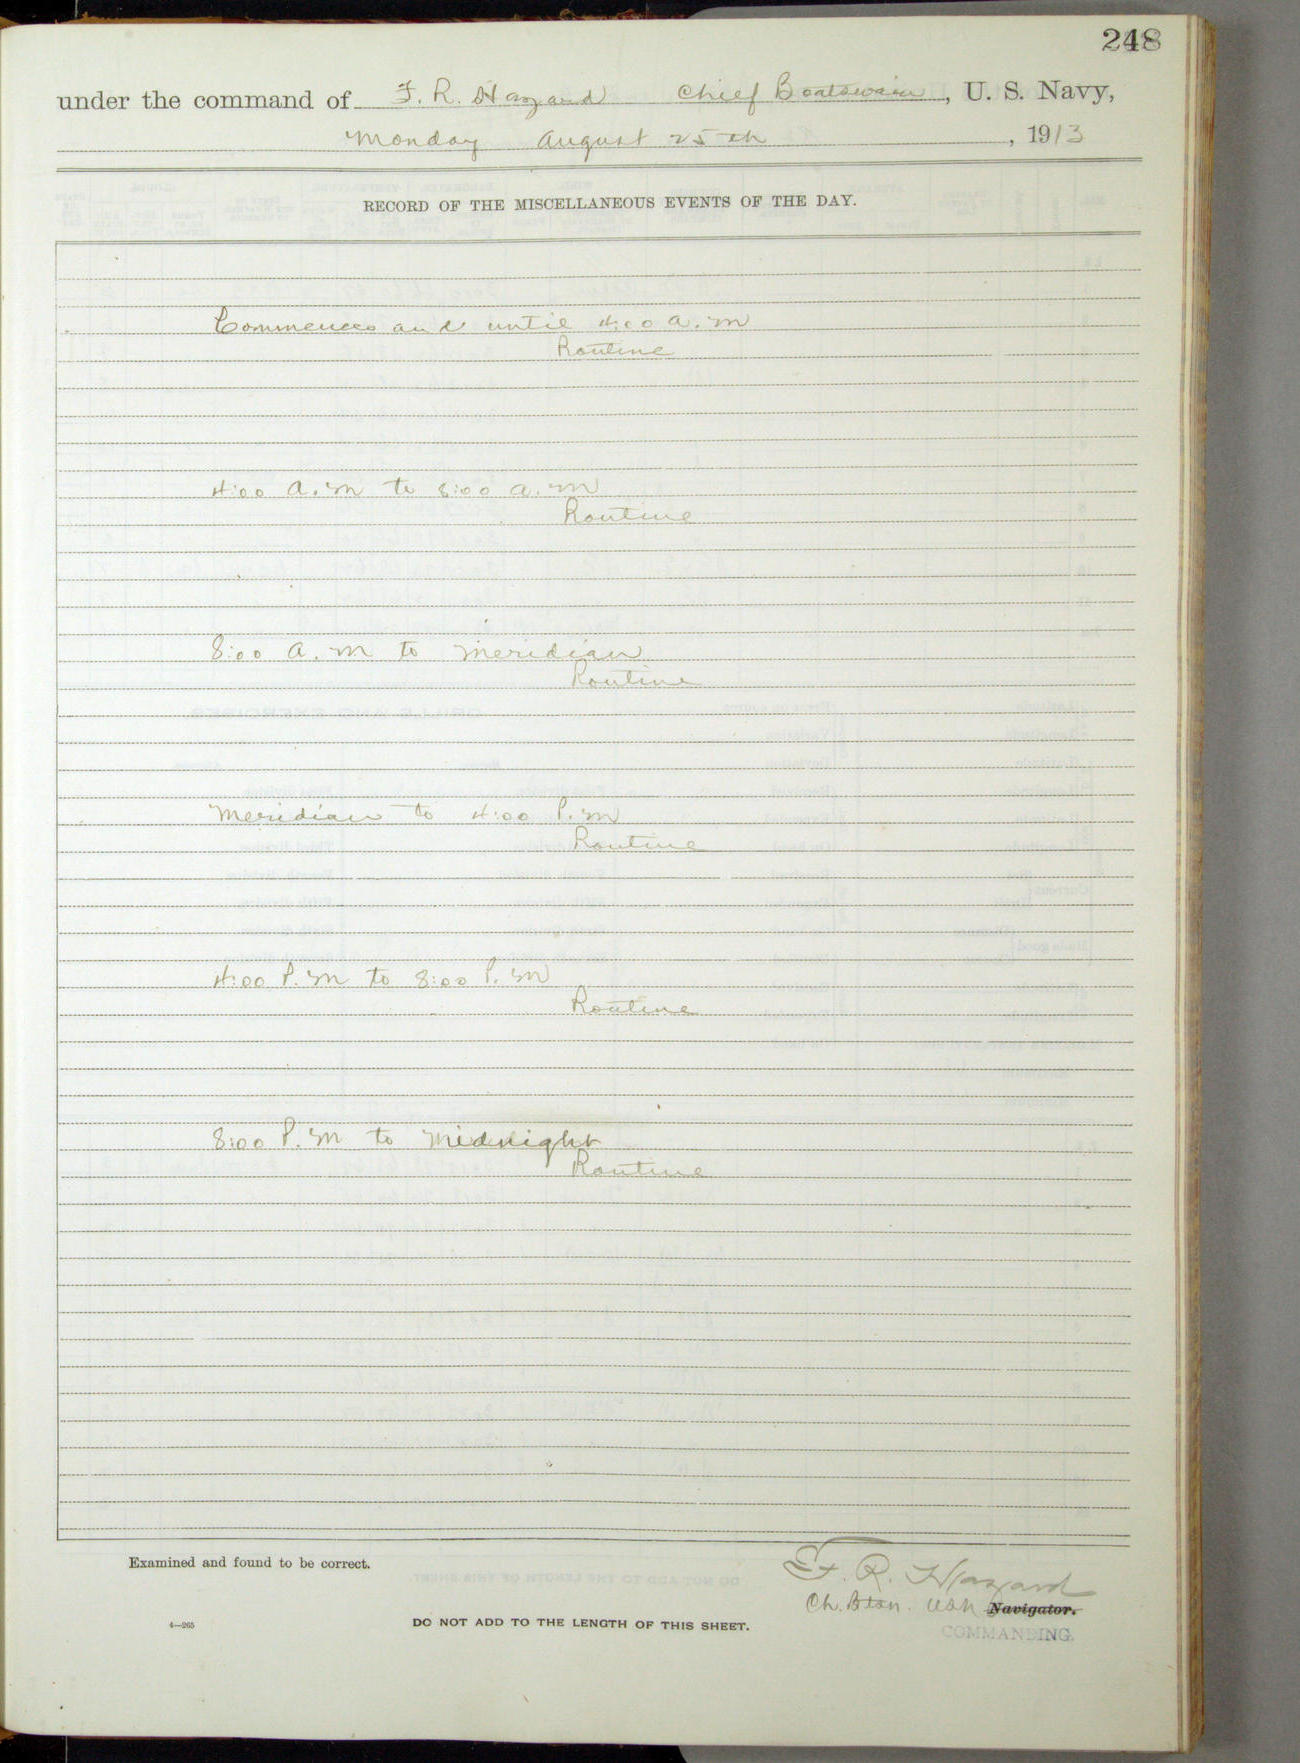 248
under the command of F. R. Hazard Chief Boatswain, U. S. Navy,
Monday August 25th, 1913
RECORD OF THE MISCELLANEOUS EVENTS OF THE DAY.
Commences and until 4:00 a.m
Routine
4:00 A.M to 8:00 a.m
Routine
8:00 A.M to Meridian
Routine
Meridian to 4:00 P.M
Routine
4:00 P.M to 8:00 P.M
Routine
8:00 P.M to Midnight
Routine
Examined and found to be correct.
F. R. Hazard
Ch. Btsn. USN Navigator.
COMMANDING.
4—265
DO NOT ADD TO THE LENGTH OF THIS SHEET.